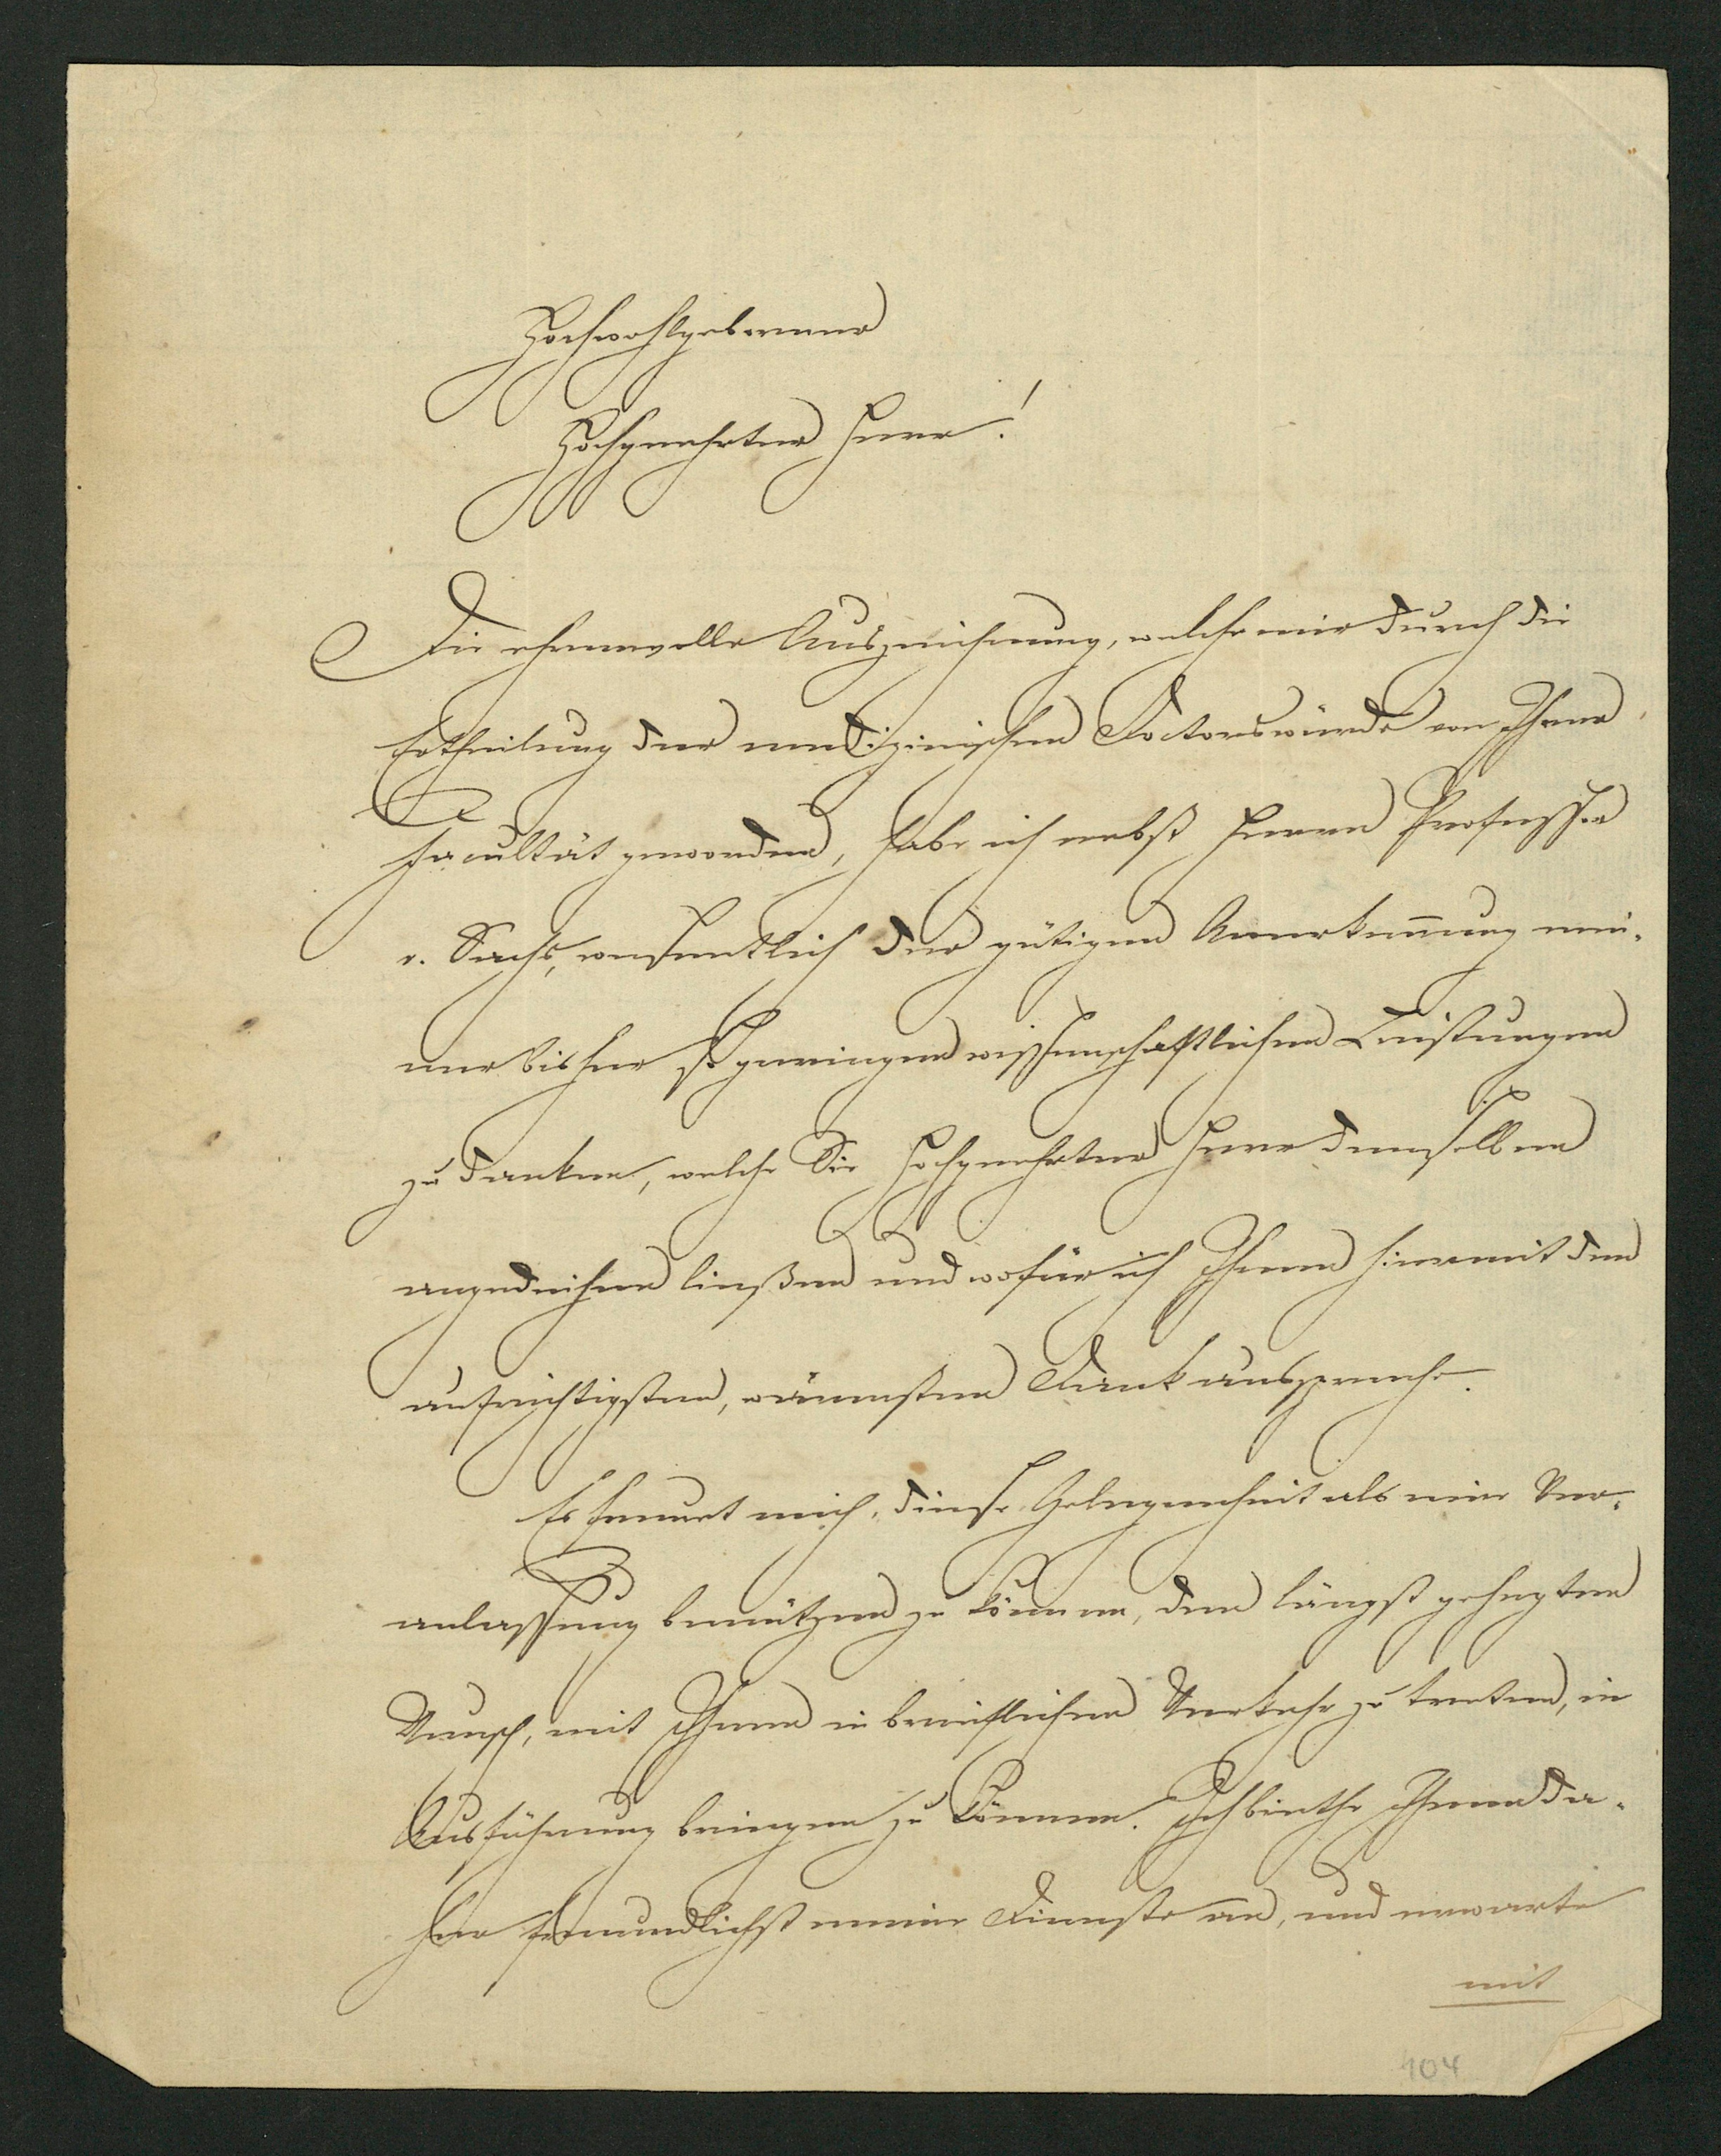 Hochwohlgeborener
Hochgeehrter Herr!
Die ehrenvolle Auszeichnung, welche mir durch die
Ertheilung der medizinischen Doctorswürde von Ihrer
Facultät geworden, habe ich nebst Herrn Professor
v. Sachs, wesentlich der gütigen Anerkennung mei-
ner bisher so geringen wissenschaftlichen Leistungen
zu danken, welche Sie hochgeehrter Herr denselben
angedeihen ließen und wofür ich Ihnen hiermit den
aufrichtigsten, wärmsten Dank ausspreche.
Es freuet mich, diese Gelegenheit als eine Ver-
anlassung benützen zu können, den längst gehegten
Wunsch, mit Ihnen in brieflichen Verkehr zu treten, in
Ausführung bringen zu können. Ich biethe Ihnen da-
her freundlichst meine Dienste an, und erwarte
mit
104